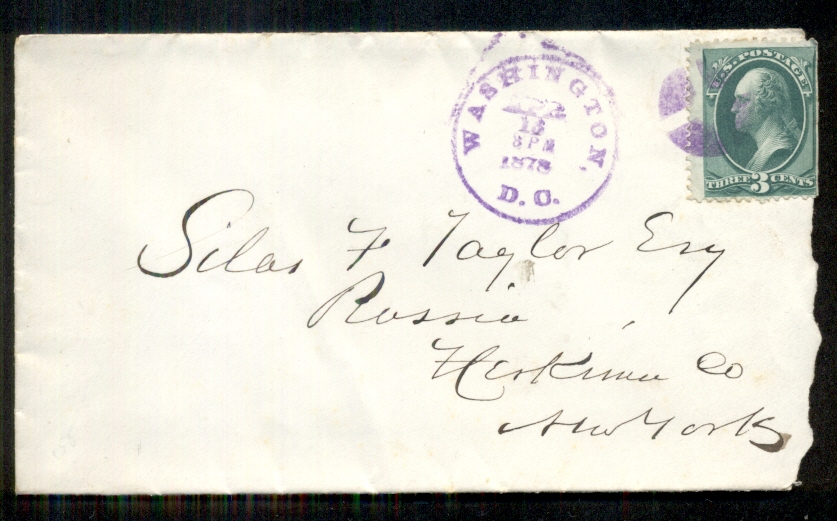 U.S. POSTAGE
THREE 3 CENTS
WASHINGTON,
8 PM
1878
D.C.
Silas F Taylor Esq
Russia,
Herkimer Co
New York